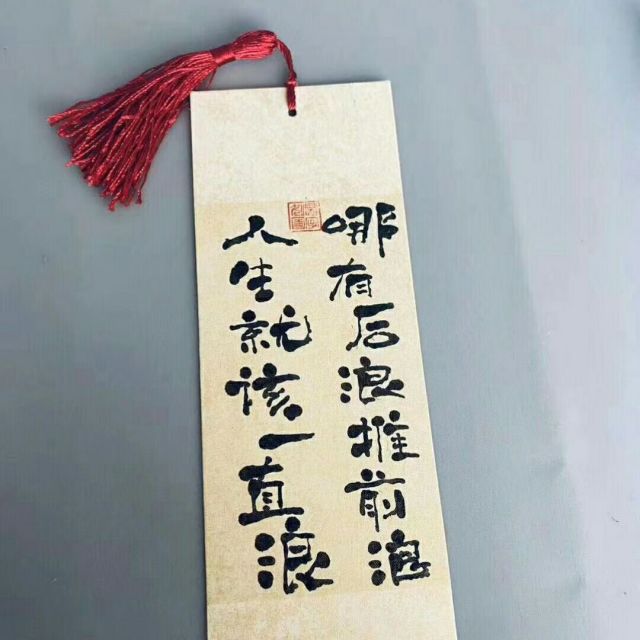 哪有后浪推前浪
人生就该一直浪